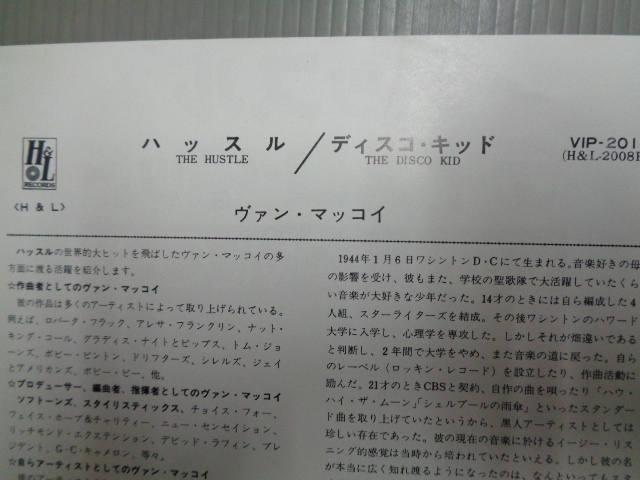 H&L
RECORDS
〈H & L〉
ハッスル／ディスコ・キッド
THE HUSTLE
THE DISCO KID
VIP-201
(H&L-2008
ヴァン・マッコイ
ハッスルの世界的大ヒットを飛ばしたヴァン・マッコイの多
方面に渡る活躍を紹介します。
☆作曲者としてのヴァン・マッコイ
彼の作品は多くのアーティストによって取り上げられている。
例えば、ロバータ・フラック、アレサ・フランクリン、ナット・
キング・コール、グラディス・ナイトとピップス、トム・ジョ
ーンズ、ボビー・ビントン、ドリフターズ、シレルズ、ジェイ
とアメリカンズ、ボビー・ビー、他。
☆プロデューサー、編曲者、指揮者としてのヴァン・マッコイ
ソフトーンズ、スタイリスティックス、チョイス・フォー、
フェイス・ホープ&チャリティー、ニュー・センセイション、
リッチモンド・エクステンション、デビッド・ラフィン、プレ
ジデント、G・C・キャメロン、等々。
☆自らアーティストとしてのヴァン・マッコイ
1944年1月6日ワシントンD・Cにて生まれる。音楽好きの母
の影響を受け、彼もまた、学校の聖歌隊で大活躍していたくら
い音楽が大好きな少年だった。14才のときには自ら編成した4
人組、スターライターズを結成。その後ワシントンのハワード
大学に入学し、心理学を専攻した。しかしそれが畑違いである
と判断し、2年間で大学をやめ、また音楽の道に戻った。自ら
のレーベル(ロッキン・レコード)を設立したり、作曲活動に
励んだ。21才のときCBSと契約、自作の曲を唄ったり「ハウ・
ハイ・ザ・ムーン」「シェルブールの雨傘」といったスタンダー
ド曲を取り上げていたというから、黒人アーティストとしては
珍しい存在であった。彼の現在の音楽に於けるイージー・リス
ニング的感覚は当時から培われていたといえる。しかし彼の名
が本当に広く知れ渡るようになったのは、なんといっても